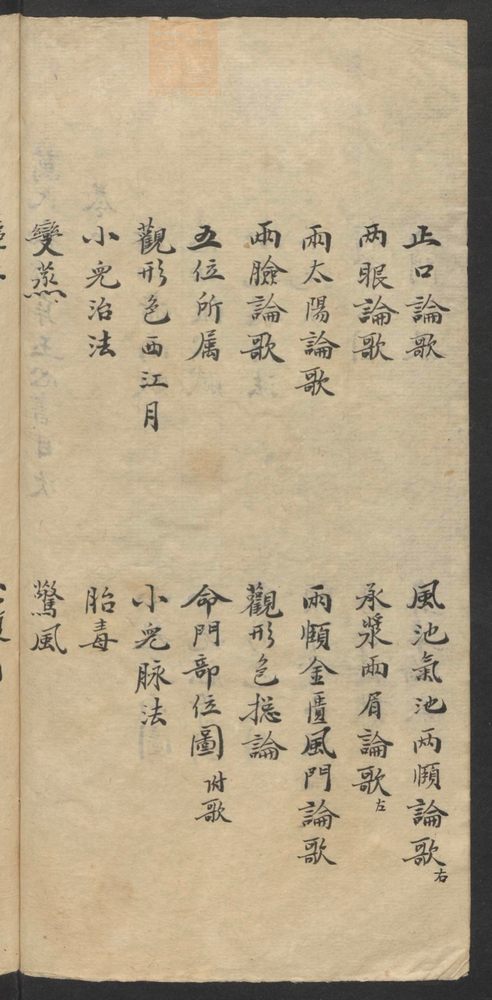 正口論歌
風池氣池兩頤論歌右
两眼論歌
承漿兩眉論歌左
兩太陽論歌
兩頤金匱風門論歌
兩臉論歌
觀形色摠論
五位所属
命門部位圖 附歌
觀形色西江月
小兒脉法
小兒治法
胎毒
變蒸
驚風